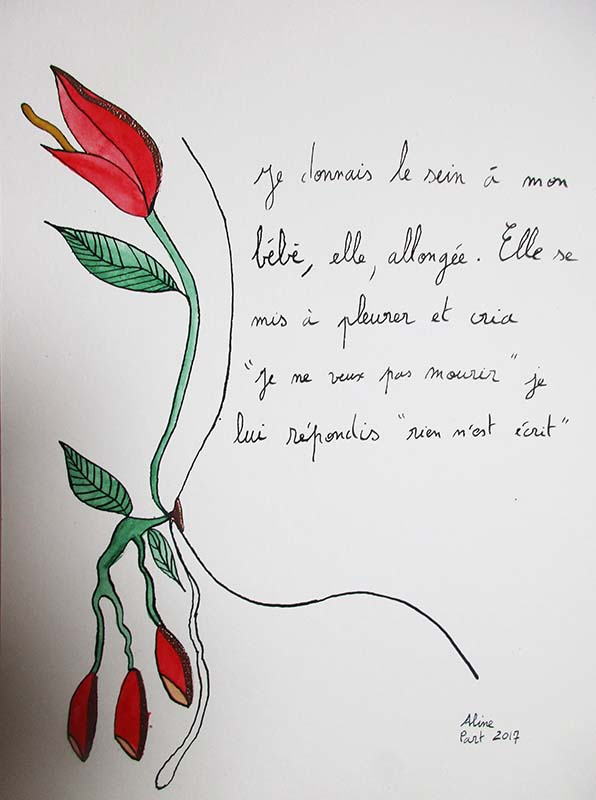 Je donnais le sein à mon
bébé, elle, allongée. Elle se
mis à pleurer et cria
"Je ne veux pas mourir" je
lui répondis "rien n'est écrit"
Aline
Part 2017